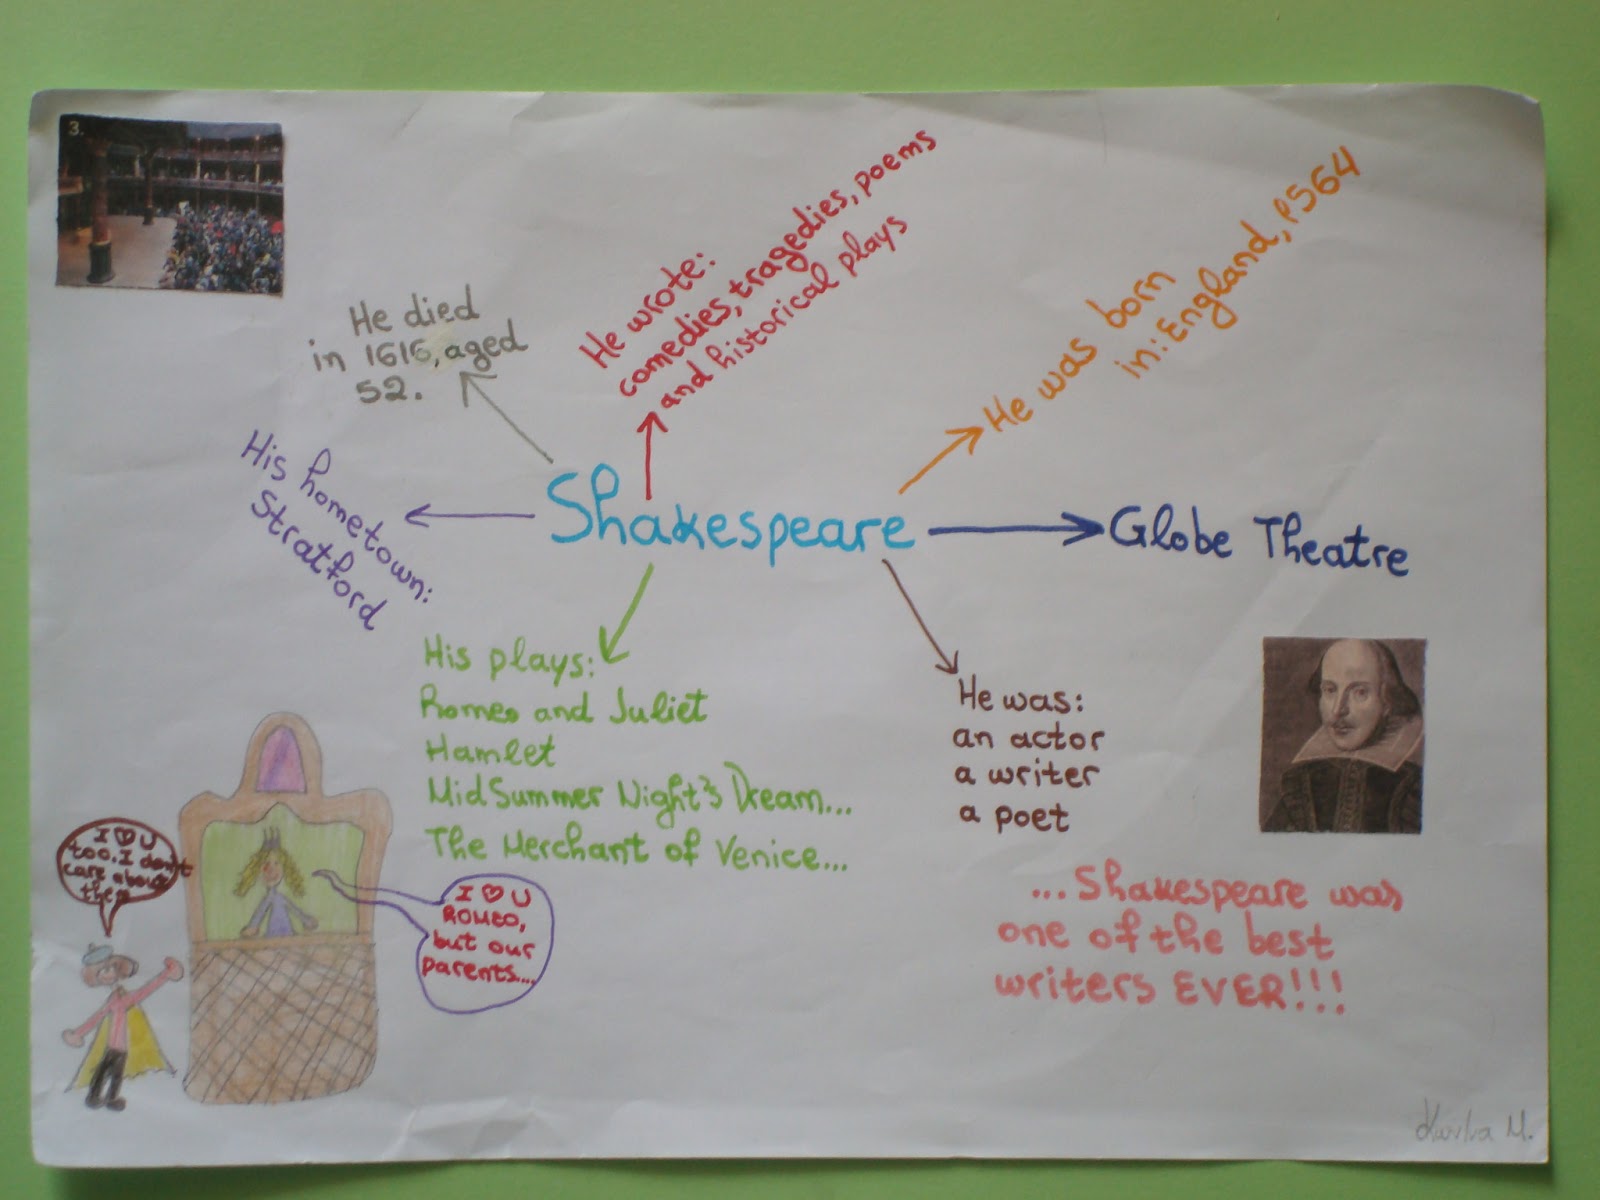 3.
He died
in 1616, aged
52.
He wrote:
comedies, tragedies, poems
and historical plays
He was born
in: England, 1564
His hometown:
Stratford
Shakespeare
Globe Theatre
His plays:
Romeo and Juliet
Hamlet
MidSummer Night's Dream...
The Merchant of Venice...
He was:
an actor
a writer
a poet
I ♥ U
too. I don't
care about
them
I ♥ U
ROMEO,
but our
parents....
...Shakespeare was
one of the best
writers EVER!!!
M.